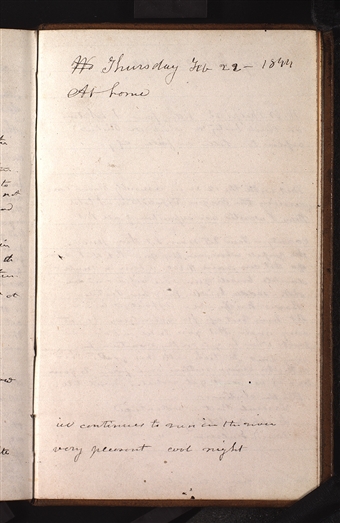 Thursday Feb 22 - 1844
At home
ice continues to run in the river
very pleasant cool night
to
not
in
the
at